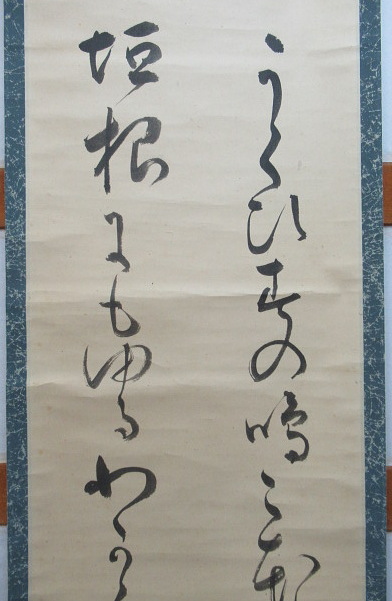 うくひすの鳴こ
垣根にもゆるわか